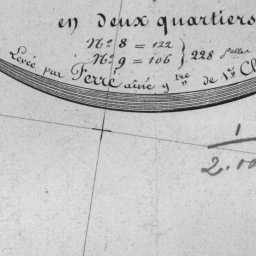 en deux quartiers
N° 8 = 122
N° 9 = 106 } 228
Levée par Ferré aîné
de
1
2.